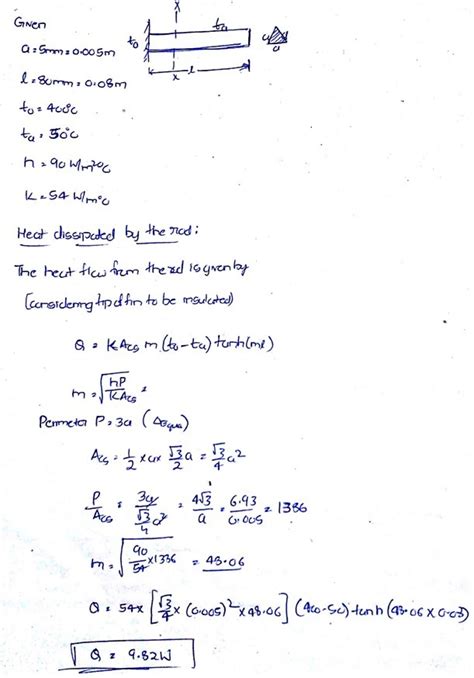 Given
x
to
ta
a
a
l
x
a = 5mm = 0.005m
l = 80mm = 0.08m
to = 400°C
ta = 50°C
h = 90 W/m²°C
K = 54 W/m°C
Heat dissipated by the rod :
The heat flow from the rod is given by
(considering tip of fin to be insulated)
Q = K Acs m (to - ta) tanh(ml)
m = √(hP/KAcs) =
Perimeter P = 3a (Δequa)
Acs = 1/2 × a × √3/2 a = √3/4 a²
P/Acs = 3a/(√3/4 a²) = 4√3/a = 6.93/0.005 = 1386
m = √(90/54 × 1336) = 48.06
Q = 54 × [√3/4 × (0.005)² × 48.06] (400 - 50) tanh (48.06 × 0.08)
Q = 9.82W